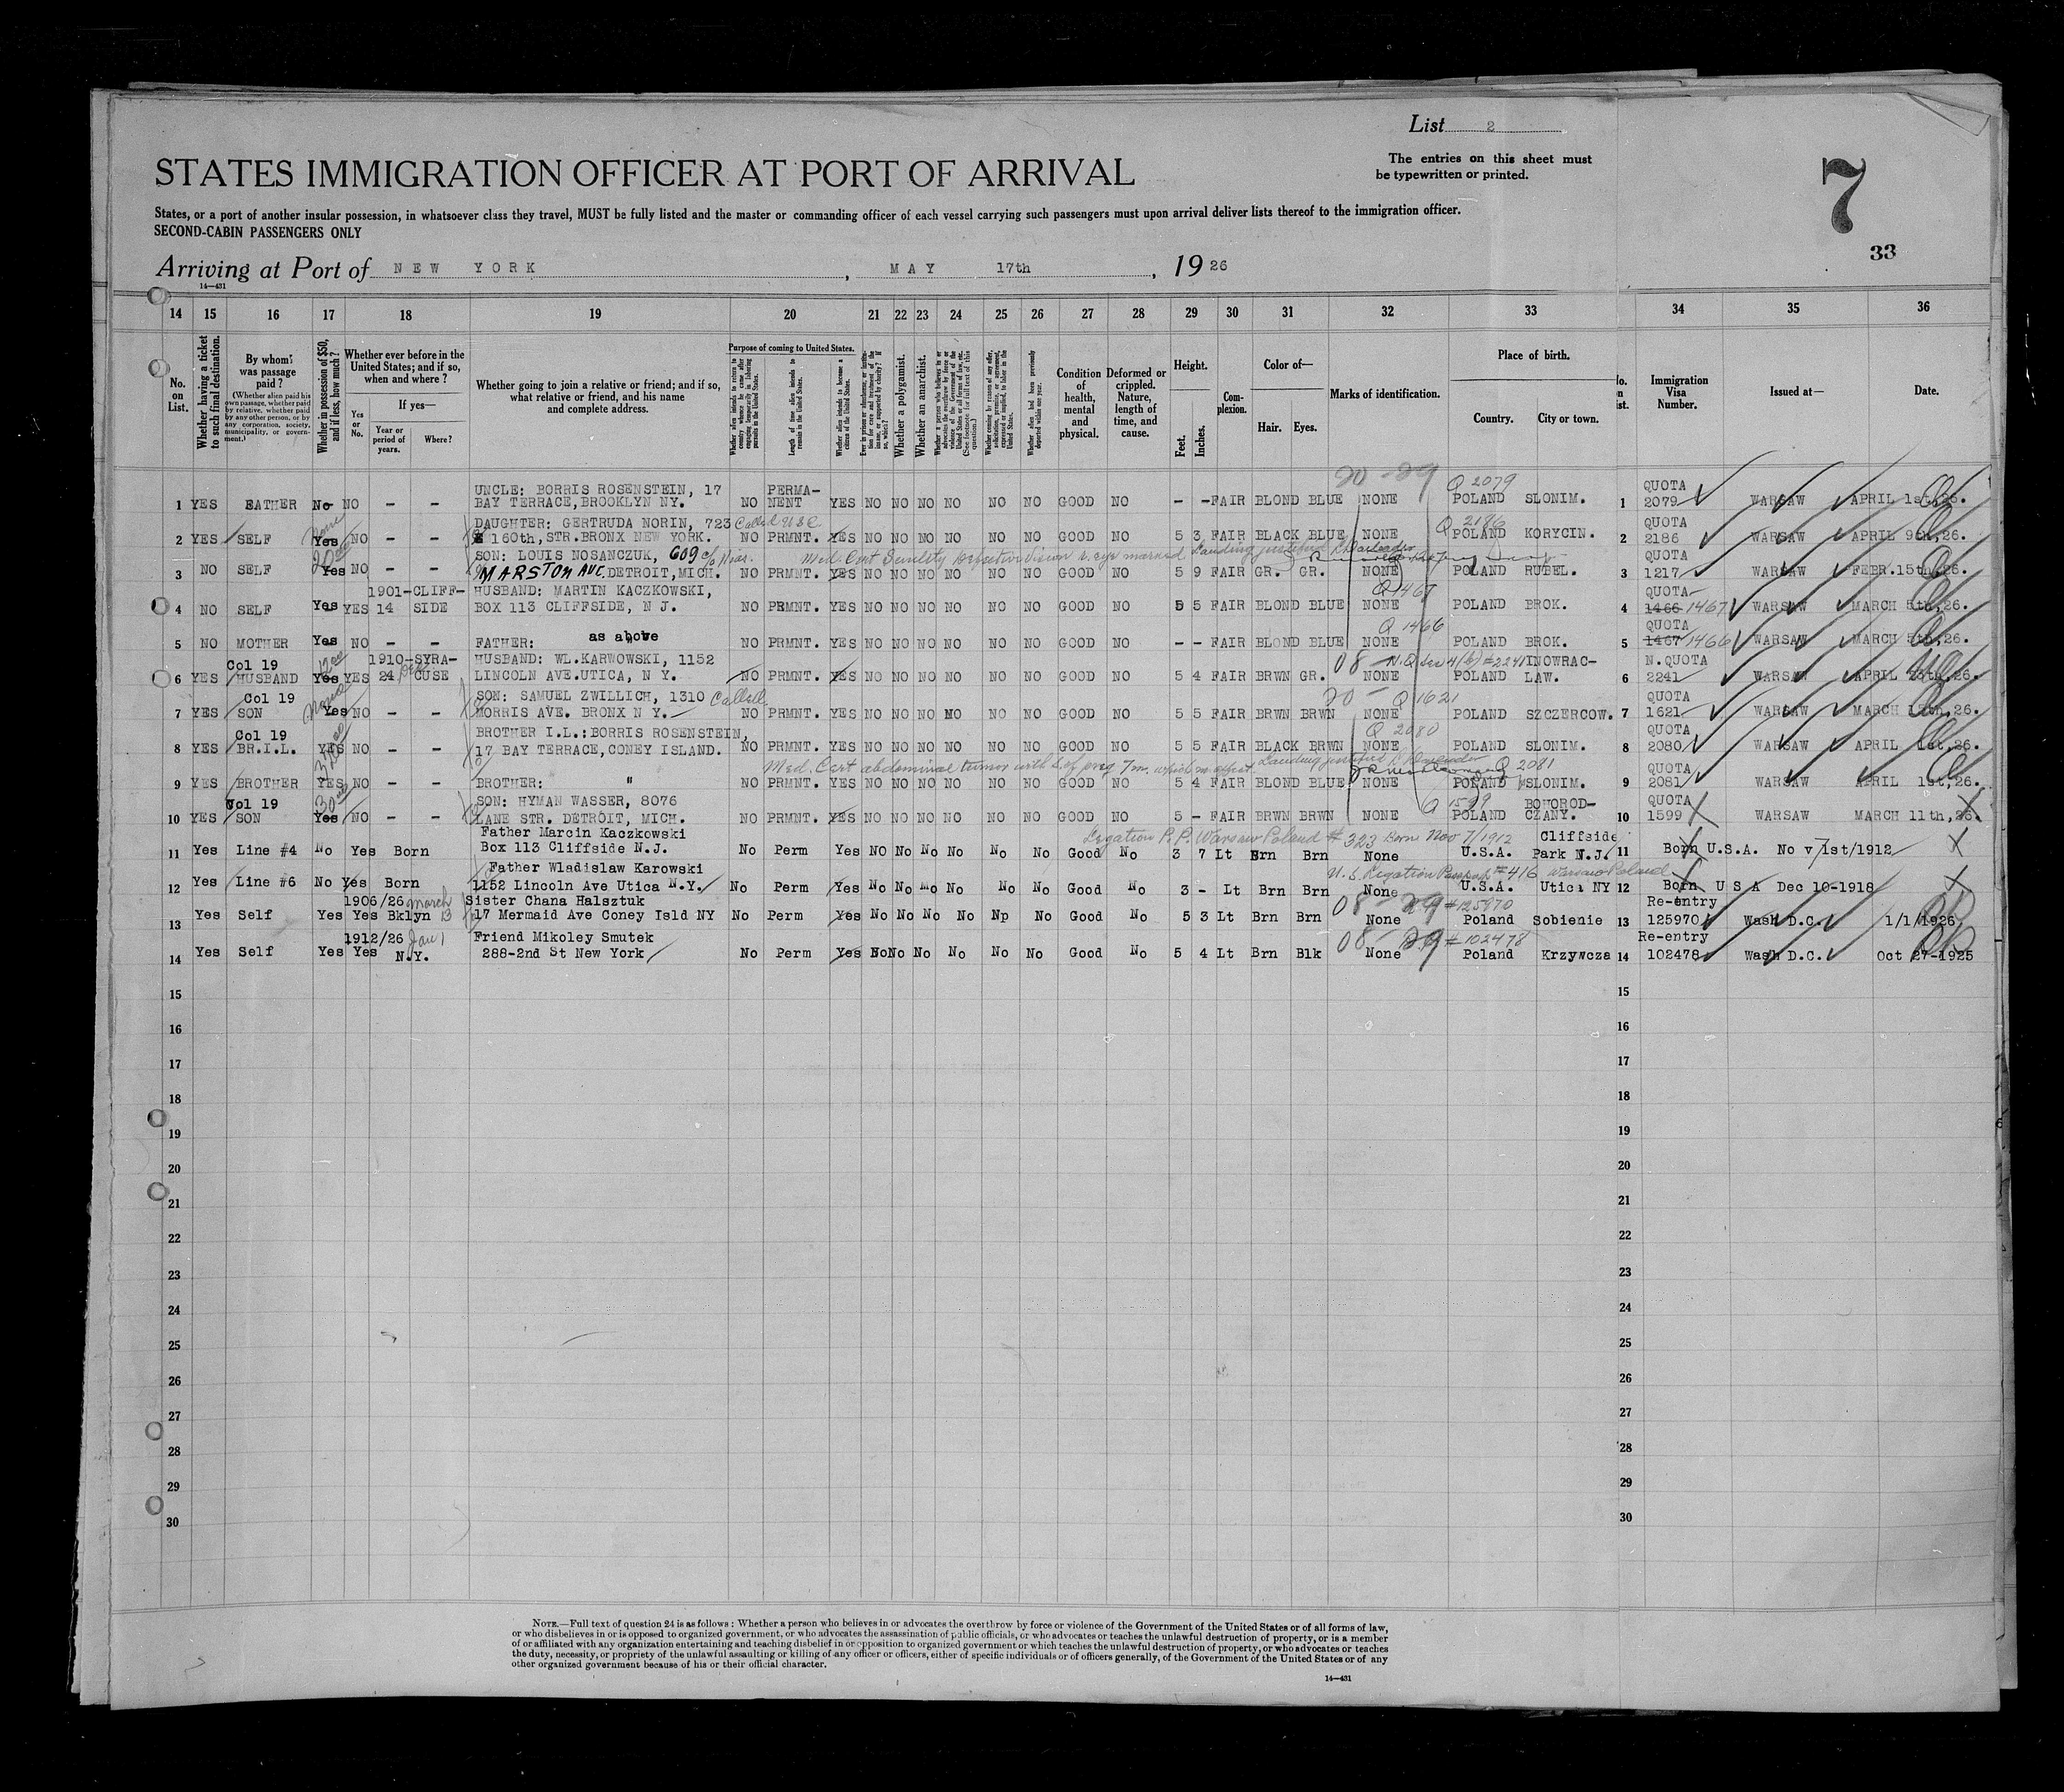 List 2
The entries on this sheet must
be typewritten or printed.
7
33
STATES IMMIGRATION OFFICER AT PORT OF ARRIVAL
States, or a port of another insular possession, in whatsoever class they travel, MUST be fully listed and the master or commanding officer of each vessel carrying such passengers must upon arrival deliver lists thereof to the immigration officer.
SECOND-CABIN PASSENGERS ONLY
Arriving at Port of NEW YORK, MAY 17th, 1926
14—431
14 15 16 17 18 19 20 21 22 23 24 25 26 27 28 29 30 31 32 33 34 35 36
No. on List.
Whether having a ticket to such final destination.
By whom was passage paid?
(Whether alien paid his own passage, whether paid by relative, whether paid by any other person, or by any corporation, society, municipality, or government.)
Whether in possession of $50, and if less, how much?
Whether ever before in the United States; and if so, when and where?
If yes—
Yes or No.
Year or period of years.
Where?
Whether going to join a relative or friend; and if so, what relative or friend, and his name and complete address.
Purpose of coming to United States.
Length of time alien intends to remain in the United States.
Whether alien intends to become a citizen of the United States.
Whether a polygamist.
Whether an anarchist.
Condition of health, mental and physical.
Deformed or crippled. Nature, length of time, and cause.
Height.
Feet. Inches.
Complexion.
Color of—
Hair. Eyes.
Marks of identification.
Place of birth.
Country. City or town.
Immigration Visa Number.
Issued at—
Date.
20 - 29 Q 2079
UNCLE: BORRIS ROSENSTEIN, 17 PERMA- QUOTA
1 YES FATHER No NO - - BAY TERRACE, BROOKLYN NY. NO NENT YES NO NO NO NO NO NO GOOD NO - - FAIR BLOND BLUE NONE POLAND SLONIM. 1 2079 WARSAW APRIL 1st,26.
DAUGHTER: GERTRUDA NORIN, 723 Q 2186 QUOTA
2 YES SELF Yes NO - - E 160th, STR. BRONX NEW YORK. NO PRMNT. YES NO NO NO NO NO NO GOOD NO 5 3 FAIR BLACK BLUE NONE POLAND KORYCIN. 2 2186 WARSAW APRIL 9th,26.
SON: LOUIS NOSANCZUK, 609 Med. Cert Senility defective vision Landing justified QUOTA
3 NO SELF Yes NO - - MARSTON AVE. DETROIT, MICH. NO PRMNT. YES NO NO NO NO NO NO GOOD NO 5 9 FAIR GR. GR. NONE POLAND RUBEL. 3 1217 WARSAW FEBR.15th,26.
1901- CLIFF- HUSBAND: MARTIN KACZKOWSKI, Q 1467 QUOTA
4 NO SELF Yes YES 14 SIDE BOX 113 CLIFFSIDE, N J. NO PRMNT. YES NO NO NO NO NO NO GOOD NO 5 5 FAIR BLOND BLUE NONE POLAND BROK. 4 1466 1467 WARSAW MARCH 5th,26.
as above Q 1466 QUOTA
5 NO MOTHER Yes NO - - FATHER: NO PRMNT. YES NO NO NO NO NO NO GOOD NO - - FAIR BLOND BLUE NONE POLAND BROK. 5 1467 1466 WARSAW MARCH 5th,26.
Col 19 1910- SYRA- HUSBAND: WL.KARWOWSKI, 1152 08 - N.Q. Sec 4 (b) #2241 INOWRAC- N.QUOTA
6 YES HUSBAND Yes YES 24 CUSE LINCOLN AVE.UTICA, N Y. NO PRMNT. YES NO NO NO NO NO NO GOOD NO 5 4 FAIR BRWN GR. NONE POLAND LAW. 6 2241 WARSAW APRIL
Col 19 SON: SAMUEL ZWILLICH, 1310 20 - Q 1621 QUOTA
7 YES SON Yes NO - - MORRIS AVE. BRONX N Y. NO PRMNT. YES NO NO NO NO NO NO GOOD NO 5 5 FAIR BRWN BRWN NONE POLAND SZCZERCOW. 7 1621 WARSAW MARCH
Col 19 BROTHER I.L.:BORRIS ROSENSTEIN, Q 2080 QUOTA
8 YES BR.I.L. YES NO - - 17 BAY TERRACE, CONEY ISLAND. NO PRMNT. YES NO NO NO NO NO NO GOOD NO 5 5 FAIR BLACK BRWN NONE POLAND SLONIM. 8 2080 WARSAW APRIL 1st,26.
Med. Cert abdominal tumor Landing justified Q 2081 QUOTA
9 YES BROTHER YES NO - - BROTHER: " NO PRMNT. YES NO NO NO NO NO NO GOOD NO 5 4 FAIR BLOND BLUE NONE POLAND SLONIM. 9 2081 WARSAW APRIL 1st,26.
Col 19 30 SON: HYMAN WASSER, 8076 Q 1599 BOHOROD- QUOTA
10 YES SON Yes NO - - LANE STR. DETROIT, MICH. NO PRMNT. YES NO NO NO NO NO NO GOOD NO 5 - FAIR BRWN BRWN NONE POLAND CZANY. 10 1599 WARSAW MARCH 11th,26.
Father Marcin Kaczkowski Legation P.P. Warsaw Poland # 323 Born Nov 7/1912 Cliffside
11 Yes Line #4 No Yes Born Box 113 Cliffside N.J. No Perm Yes NO No No No No No Good No 3 7 Lt Brn Brn None U.S.A. Park N.J. 11 Born U.S.A. Nov 1st/1912
Father Wladislaw Karowski U.S. Legation Passport #416 Warsaw Poland
12 Yes Line #6 No Yes Born 1152 Lincoln Ave Utica N.Y. No Perm Yes No No No No No No Good No 3 - Lt Brn Brn None U.S.A. Utica NY 12 Born U S A Dec 10-1918
1906/26 March 13 Sister Chana Halsztuk 08 - 29 #125970 Re-entry
13 Yes Self Yes Yes Bklyn 17 Mermaid Ave Coney Isld NY No Perm Yes No No No No No No Good No 5 3 Lt Brn Brn None Poland Sobienie 13 125970 Wash D.C. 1/1/1926
1912/26 Jan 1 Friend Mikoley Smutek 08 - 29 # 102478 Re-entry
14 Yes Self Yes Yes N.Y. 288-2nd St New York No Perm Yes No No No No No No Good No 5 4 Lt Brn Blk None Poland Krzywcza 14 102478 Wash D.C. Oct 27-1925
15 15
16 16
17 17
18 18
19 19
20 20
21 21
22 22
23 23
24 24
25 25
26 26
27 27
28 28
29 29
30 30
NOTE.—Full text of question 24 is as follows: Whether a person who believes in or advocates the overthrow by force or violence of the Government of the United States or of all forms of law,
or who disbelieves in or is opposed to organized government, or who advocates the assassination of public officials, or who advocates or teaches the unlawful destruction of property, or is a member
of or affiliated with any organization entertaining and teaching disbelief in or opposition to organized government or which teaches the unlawful destruction of property, or who advocates or teaches
the duty, necessity, or propriety of the unlawful assaulting or killing of any officer or officers, either of specific individuals or of officers generally, of the Government of the United States or of any
other organized government because of his or their official character.
14—431